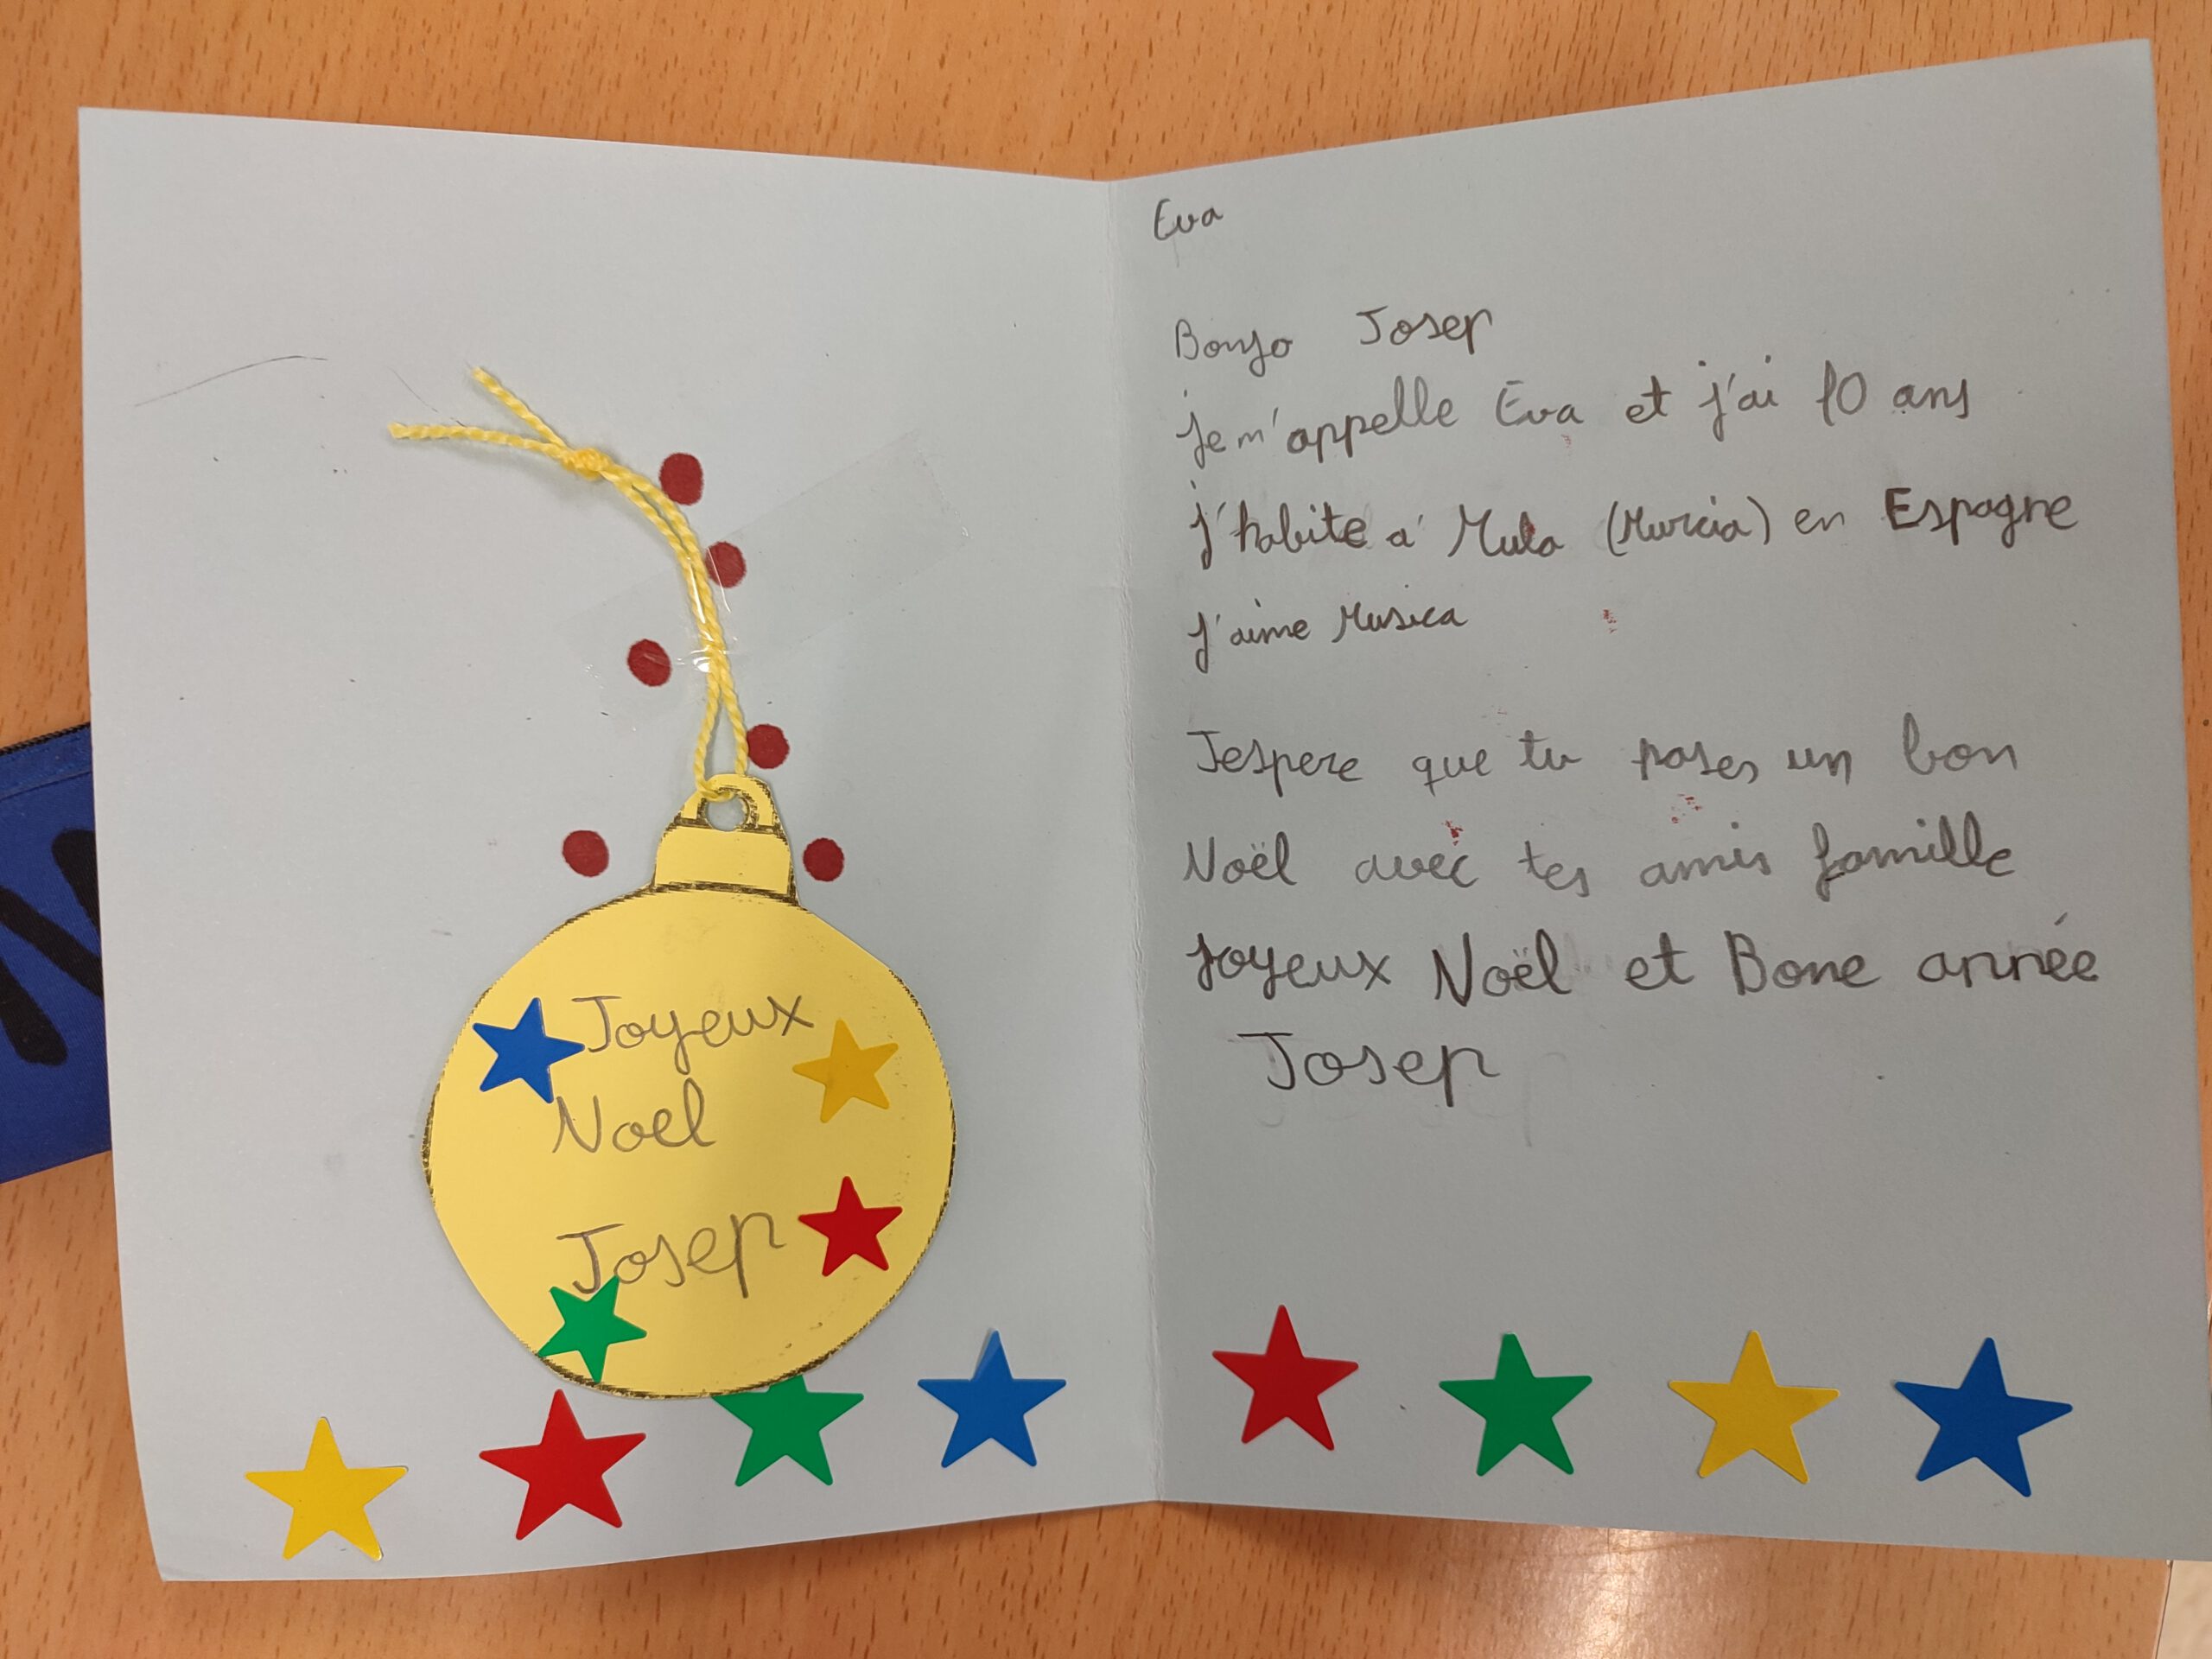 Joyeux
Noel
Josep
Eva
Bonjo Josep
je m'appelle Eva et j'ai 10 ans
j'habite a' Mula (Murcia) en Espagne
j'aime Musica
Jespere que tu pases un bon
Noël avec tes amis famille
joyeux Noël et Bone année
Josep